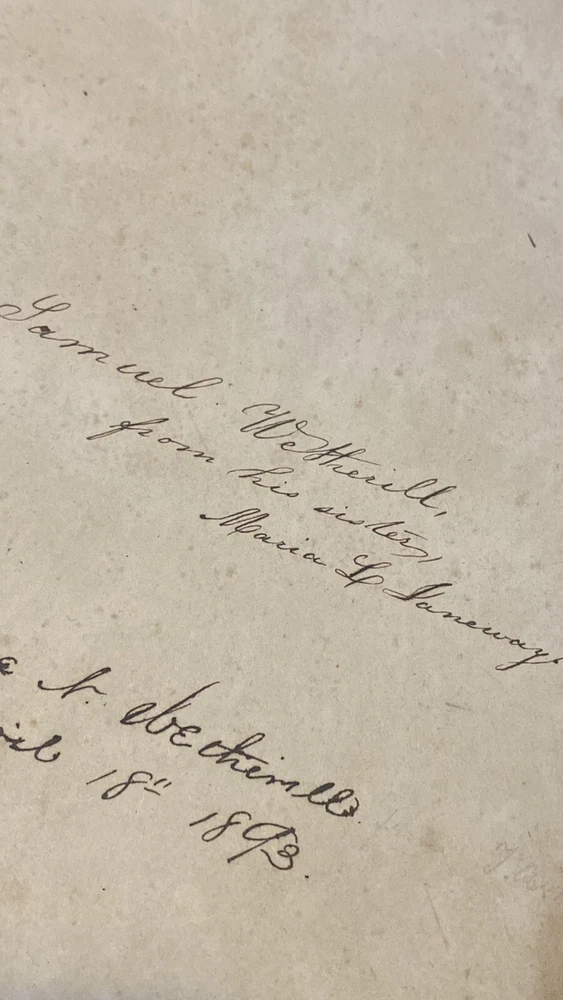 Samuel Wetherill,
from his sister,
Maria L Janeway.
N. Wetherill
18" 1893.